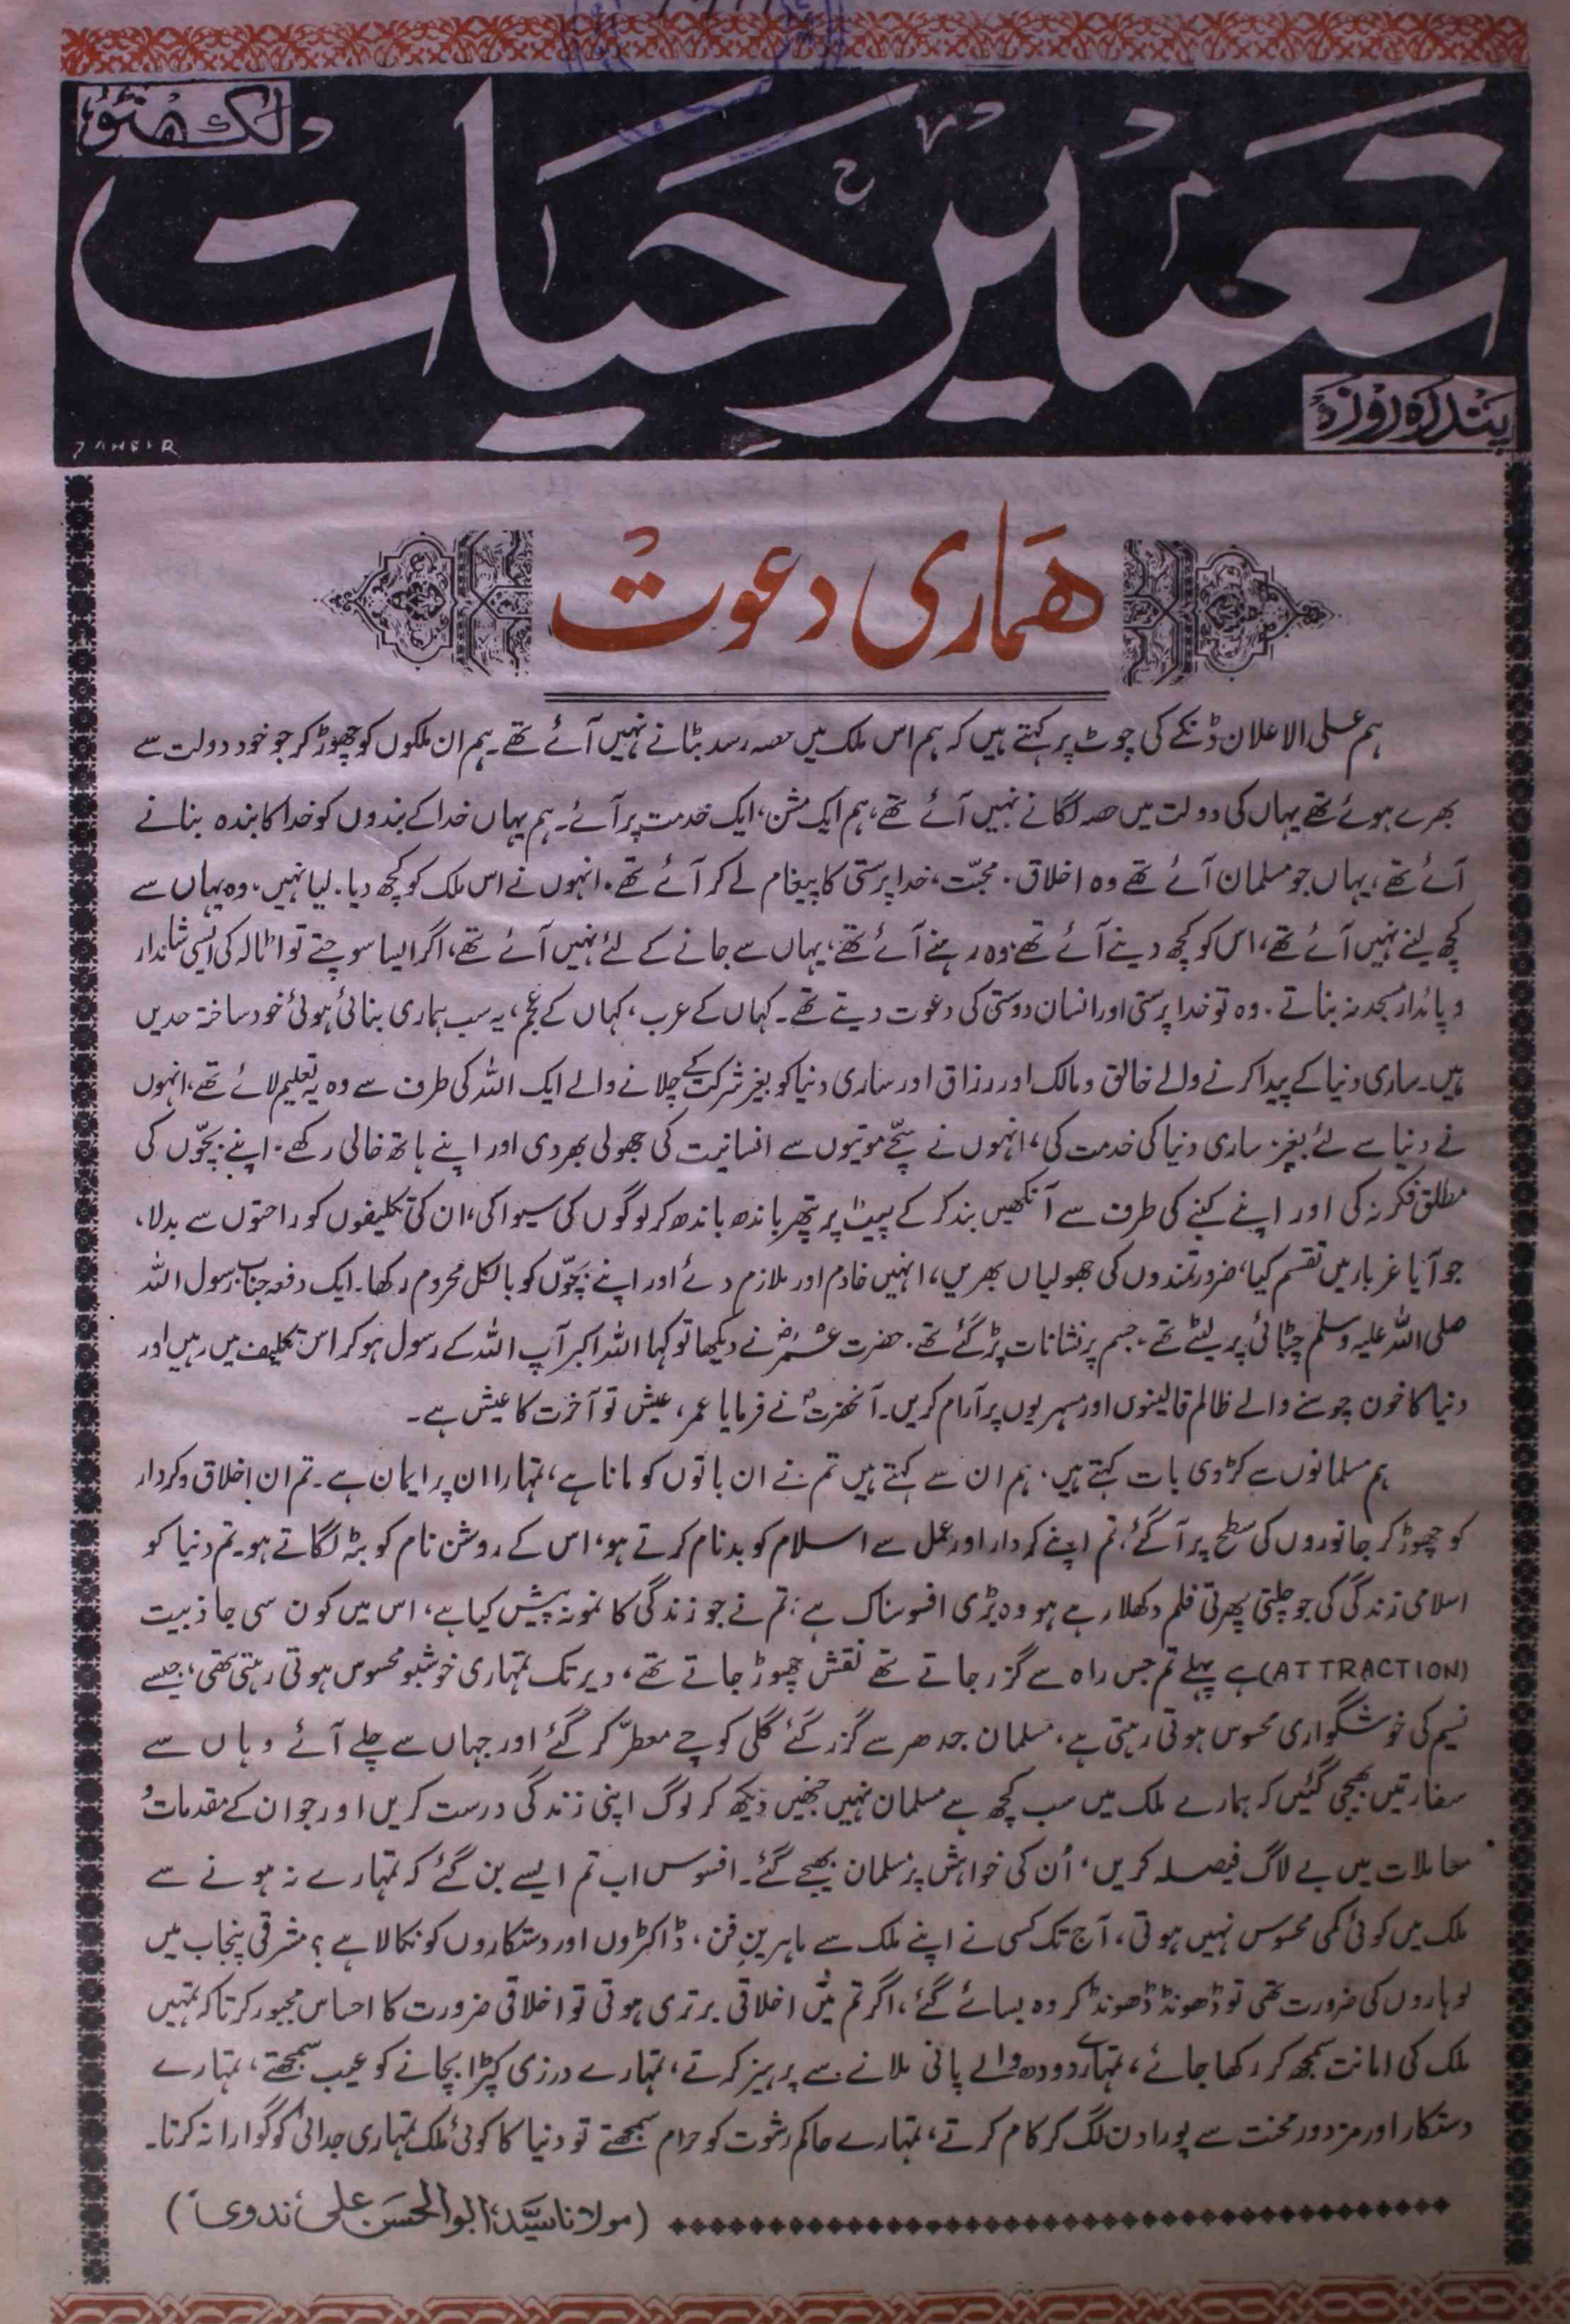 لکھنؤ
تعمیر حیات
پندرہ روزہ
ZAHEER
ہماری دعوت
ہم علی الاعلان ڈنکے کی چوٹ پر کہتے ہیں کہ ہم اس ملک میں حصہ رسد بٹانے نہیں آئے تھے۔ ہم ان ملکوں کو چھوڑ کر جو خود دولت سے
بھرے ہوئے تھے یہاں کی دولت میں حصہ لگانے نہیں آئے تھے، ہم ایک مشن، ایک خدمت پر آئے۔ ہم یہاں خدا کے بندوں کو خدا کا بندہ بنانے
آئے تھے، یہاں جو مسلمان آئے تھے وہ اخلاق، محبّت، خدا پرستی کا پیغام لے کر آئے تھے، انہوں نے اس ملک کو کچھ دیا، لیا نہیں، وہ یہاں سے
کچھ لینے نہیں آئے تھے، اس کو کچھ دینے آئے تھے، وہ رہنے آئے تھے، یہاں سے جانے کے لئے نہیں آئے تھے، اگر ایسا سوچتے تو اٹالہ کی ایسی شاندار
و پائدار مسجد نہ بناتے، وہ تو خدا پرستی اور انسان دوستی کی دعوت دیتے تھے۔ کہاں کے عرب، کہاں کے عجم، یہ سب ہماری بنائی ہوئی خود ساختہ حدیں
ہیں۔ ساری دنیا کے پیدا کرنے والے خالق و مالک اور رزاق اور ساری دنیا کو بغیر شرکت کے چلانے والے ایک اللہ کی طرف سے وہ یہ تعلیم لائے تھے، انہوں
نے دنیا سے لئے بغیر ساری دنیا کی خدمت کی، انہوں نے سچّے موتیوں سے انسانیت کی جھولی بھر دی اور اپنے ہاتھ خالی رکھے، اپنے بچّوں کی
مطلق فکر نہ کی اور اپنے کنبے کی طرف سے آنکھیں بند کر کے پیٹ پر پتھر باندھ باندھ کر لوگوں کی سیوا کی، ان کی تکلیفوں کو راحتوں سے بدلا،
جو آیا غربا میں تقسیم کیا، ضرورتمندوں کی جھولیاں بھریں، انہیں خادم اور ملازم دئے اور اپنے بچّوں کو بالکل محروم رکھا۔ ایک دفعہ جناب رسول اللہ
صلی اللہ علیہ وسلم چٹائی پر لیٹے تھے، جسم پر نشانات پڑ گئے تھے، حضرت عمرؓ نے دیکھا تو کہا اللہ اکبر آپ اللہ کے رسول ہو کر اس تکلیف میں رہیں اور
دنیا کا خون چوسنے والے ظالم قالینوں اور مسہریوں پر آرام کریں۔ آنحضرتؐ نے فرمایا عمر، عیش تو آخرت کا عیش ہے۔
ہم مسلمانوں سے کڑوی بات کہتے ہیں، ہم ان سے کہتے ہیں تم نے ان باتوں کو مانا ہے، تمہارا ان پر ایمان ہے۔ تم ان اخلاق و کردار
کو چھوڑ کر جانوروں کی سطح پر آ گئے، تم اپنے کردار اور عمل سے اسلام کو بدنام کرتے ہو، اس کے روشن نام کو بٹہ لگاتے ہو۔ تم دنیا کو
اسلامی زندگی کی جو چلتی پھرتی فلم دکھلا رہے ہو وہ بڑی افسوسناک ہے، تم نے جو زندگی کا نمونہ پیش کیا ہے، اس میں کون سی جاذبیت
(ATTRACTION) ہے پہلے تم جس راہ سے گزر جاتے تھے نقش چھوڑ جاتے تھے، دیر تک تمہاری خوشبو محسوس ہوتی رہتی تھی، جیسے
نسیم کی خوشگواری محسوس ہوتی رہتی ہے، مسلمان جدھر سے گزر گئے گلی کوچے معطرّ کر گئے اور جہاں سے چلے آئے وہاں سے
سفارتیں بھیجی گئیں کہ ہمارے ملک میں سب کچھ ہے مسلمان نہیں جنھیں دیکھ کر لوگ اپنی زندگی درست کریں اور جو ان کے مقدمات و
معاملات میں بے لاگ فیصلہ کریں، اُن کی خواہش پر مسلمان بھیجے گئے۔ افسوس اب تم ایسے بن گئے کہ تمہارے نہ ہونے سے
ملک میں کوئی کمی محسوس نہیں ہوتی، آج تک کسی نے اپنے ملک سے ماہرین فن، ڈاکٹروں اور دستکاروں کو نکالا ہے؟ مشرقی پنجاب میں
لوہاروں کی ضرورت تھی تو ڈھونڈ ڈھونڈ کر وہ بسائے گئے، اگر تم میں اخلاقی برتری ہوتی تو اخلاقی ضرورت کا احساس مجبور کرتا کہ تمہیں
ملک کی امانت سمجھ کر رکھا جائے، تمہارے دودھ والے پانی ملانے سے پرہیز کرتے، تمہارے درزی کپڑا بچانے کو عیب سمجھتے، تمہارے
دستکار اور مزدور محنت سے پورا دن لگ کر کام کرتے، تمہارے حاکم رشوت کو حرام سمجھتے تو دنیا کا کوئی ملک تمہاری جدائی کو گوارا نہ کرتا۔
(مولانا سیّد ابوالحسن علی ندوی)